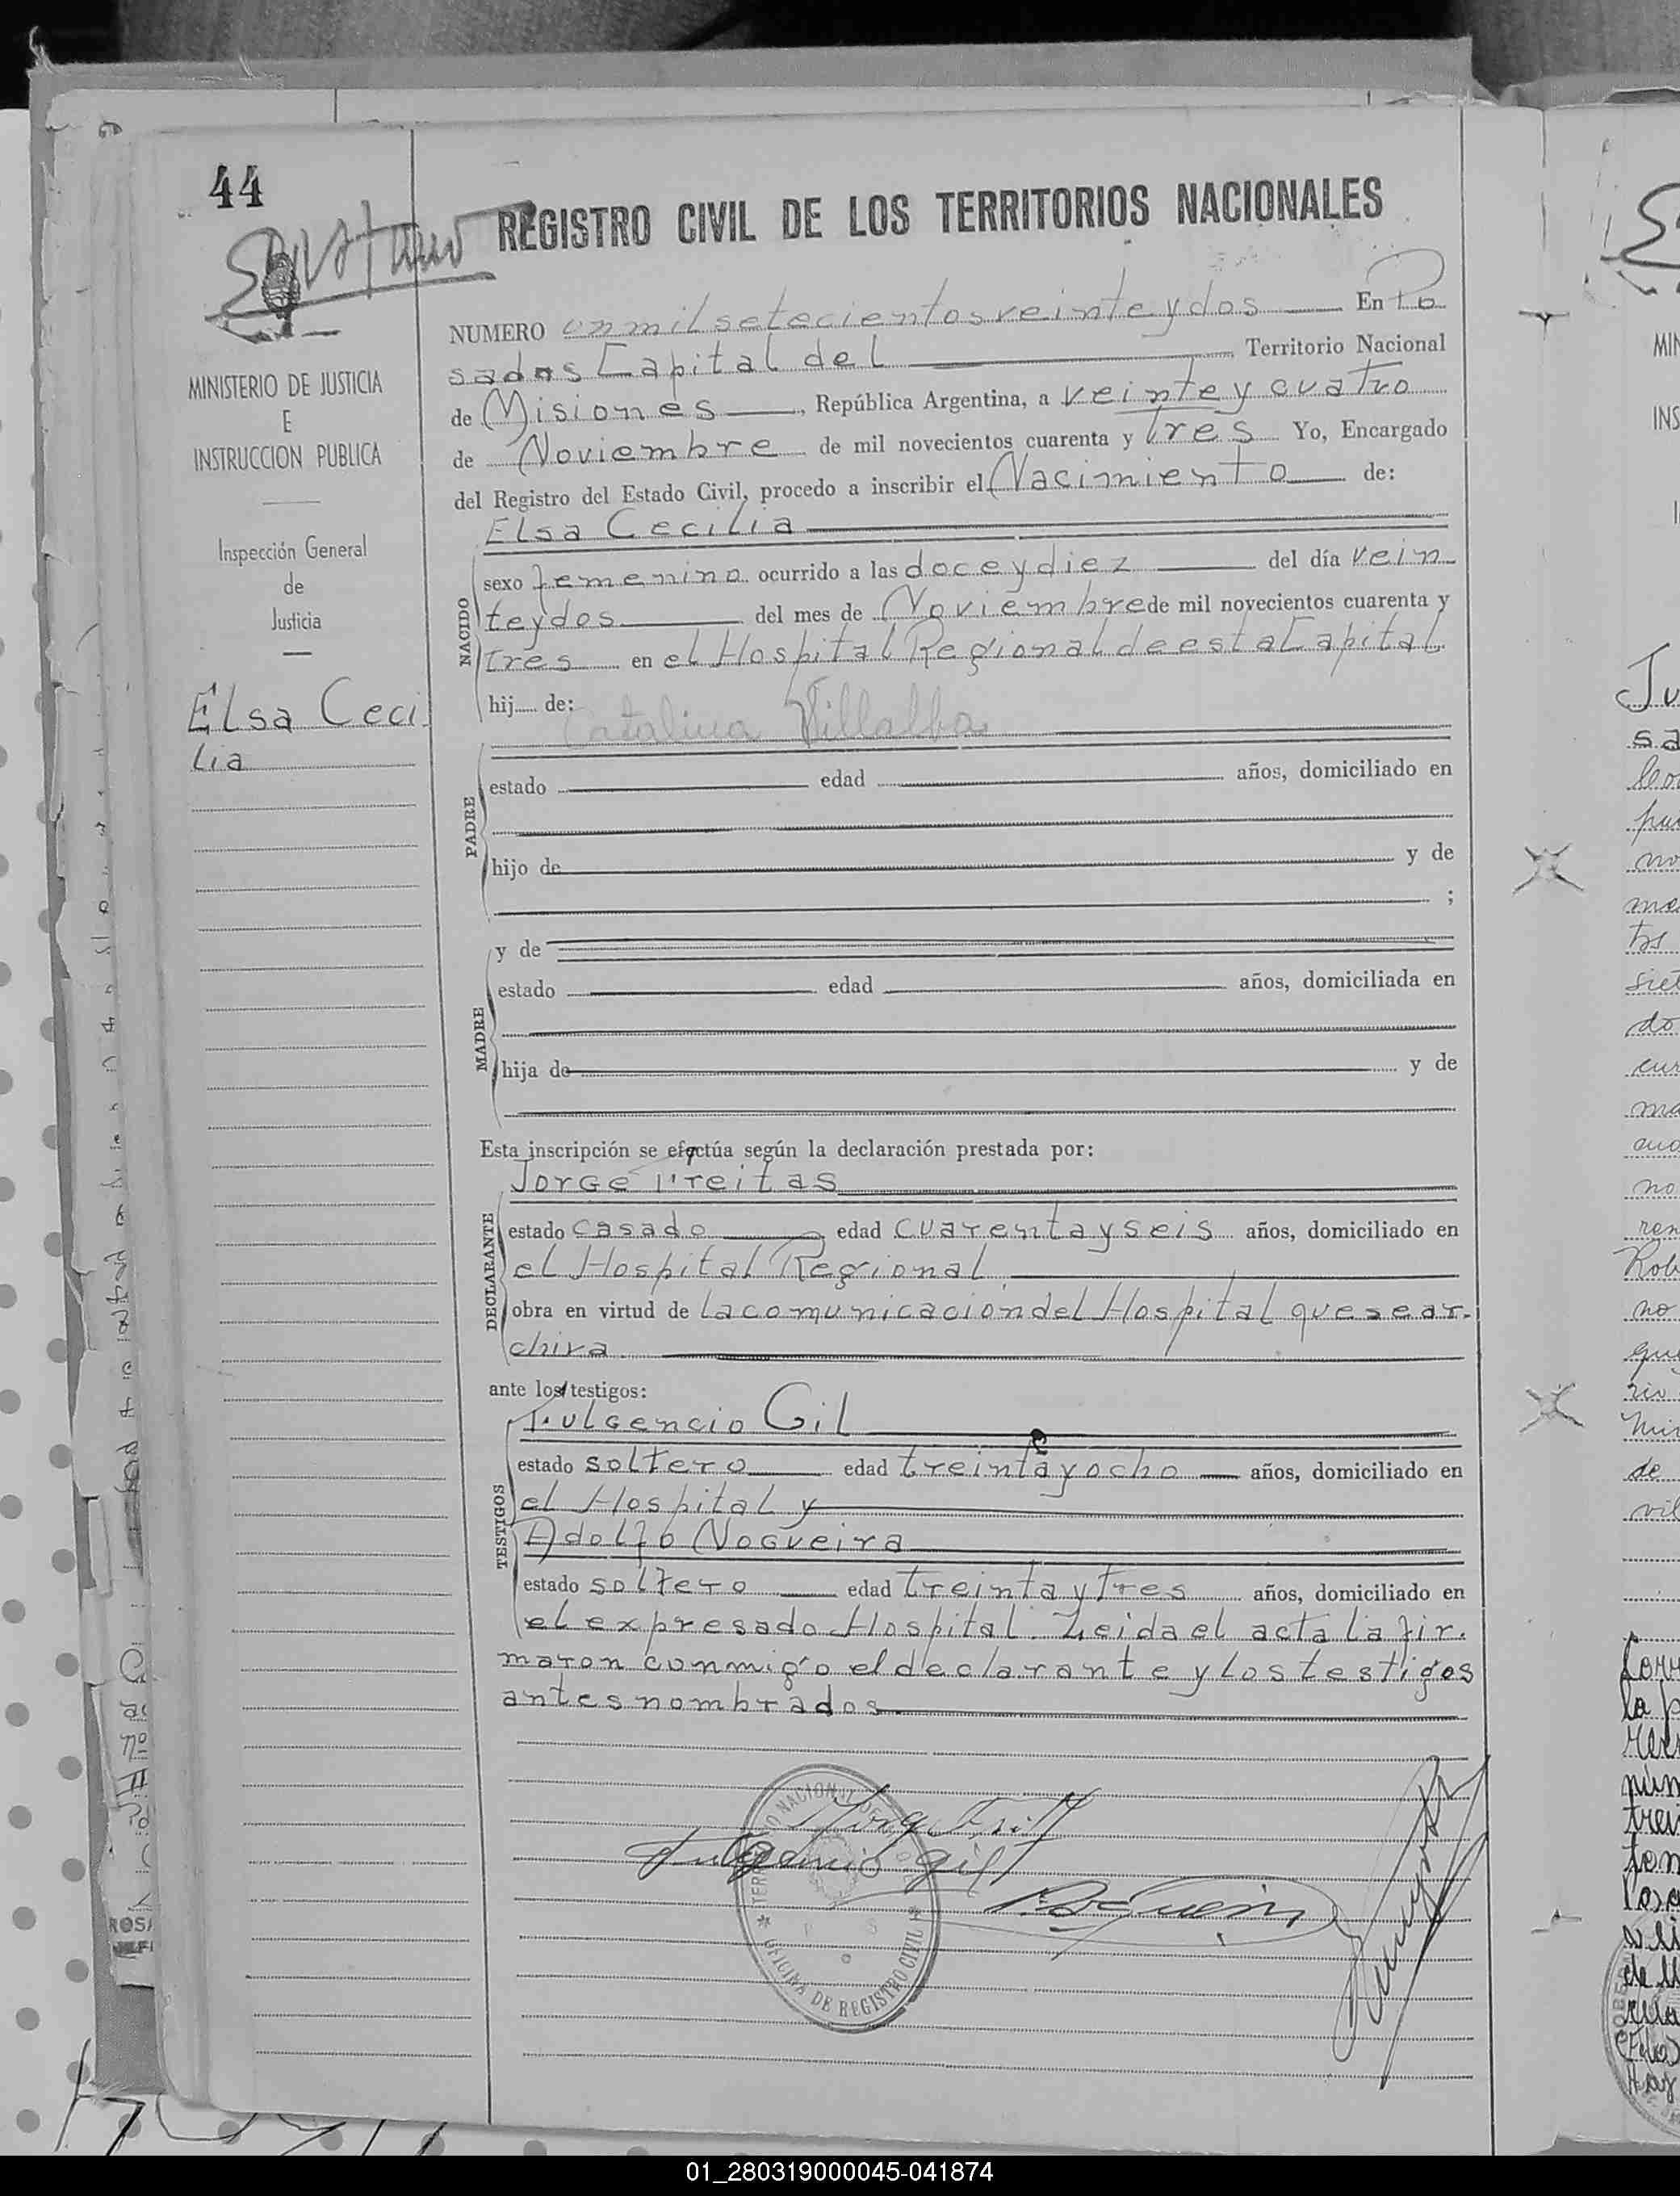 44
REGISTRO CIVIL DE LOS TERRITORIOS NACIONALES
MINISTERIO DE JUSTICIA
E
INSTRUCCION PUBLICA
Inspección General
de
Justicia
Elsa Ceci
lia
NUMERO un mil setecientos veinte y dos En Po
sadas Capital del Territorio Nacional
de Misiones, República Argentina, a veinte y cuatro
de Noviembre de mil novecientos cuarenta y tres Yo, Encargado
del Registro del Estado Civil, procedo a inscribir el Nacimiento de:
Elsa Cecilia
NACIDO
sexo femenino ocurrido a las doce y diez del día vein
te y dos del mes de Noviembre de mil novecientos cuarenta y
tres en el Hospital Regional de esta Capital
hij de:
Catalina Villalba
PADRE
estado edad años, domiciliado en
hijo de y de
;
MADRE
y de
estado edad años, domiciliada en
hija de y de
Esta inscripción se efectúa según la declaración prestada por:
Jorge Freitas
DECLARANTE
estado casado edad cuarenta y seis años, domiciliado en
el Hospital Regional
obra en virtud de la comunicación del Hospital que se ar-
chiva
ante los testigos:
Fulgencio Gil
TESTIGOS
estado soltero edad treinta y ocho años, domiciliado en
el Hospital y
Adolfo Nogueira
estado soltero edad treinta y tres años, domiciliado en
el expresado Hospital. Leida el acta la fir.
maron conmigo el declarante y los testigos
antes nombrados
Fulgencio Gil
OFICINA DE REGISTRO CIVIL
01_280319000045-041874